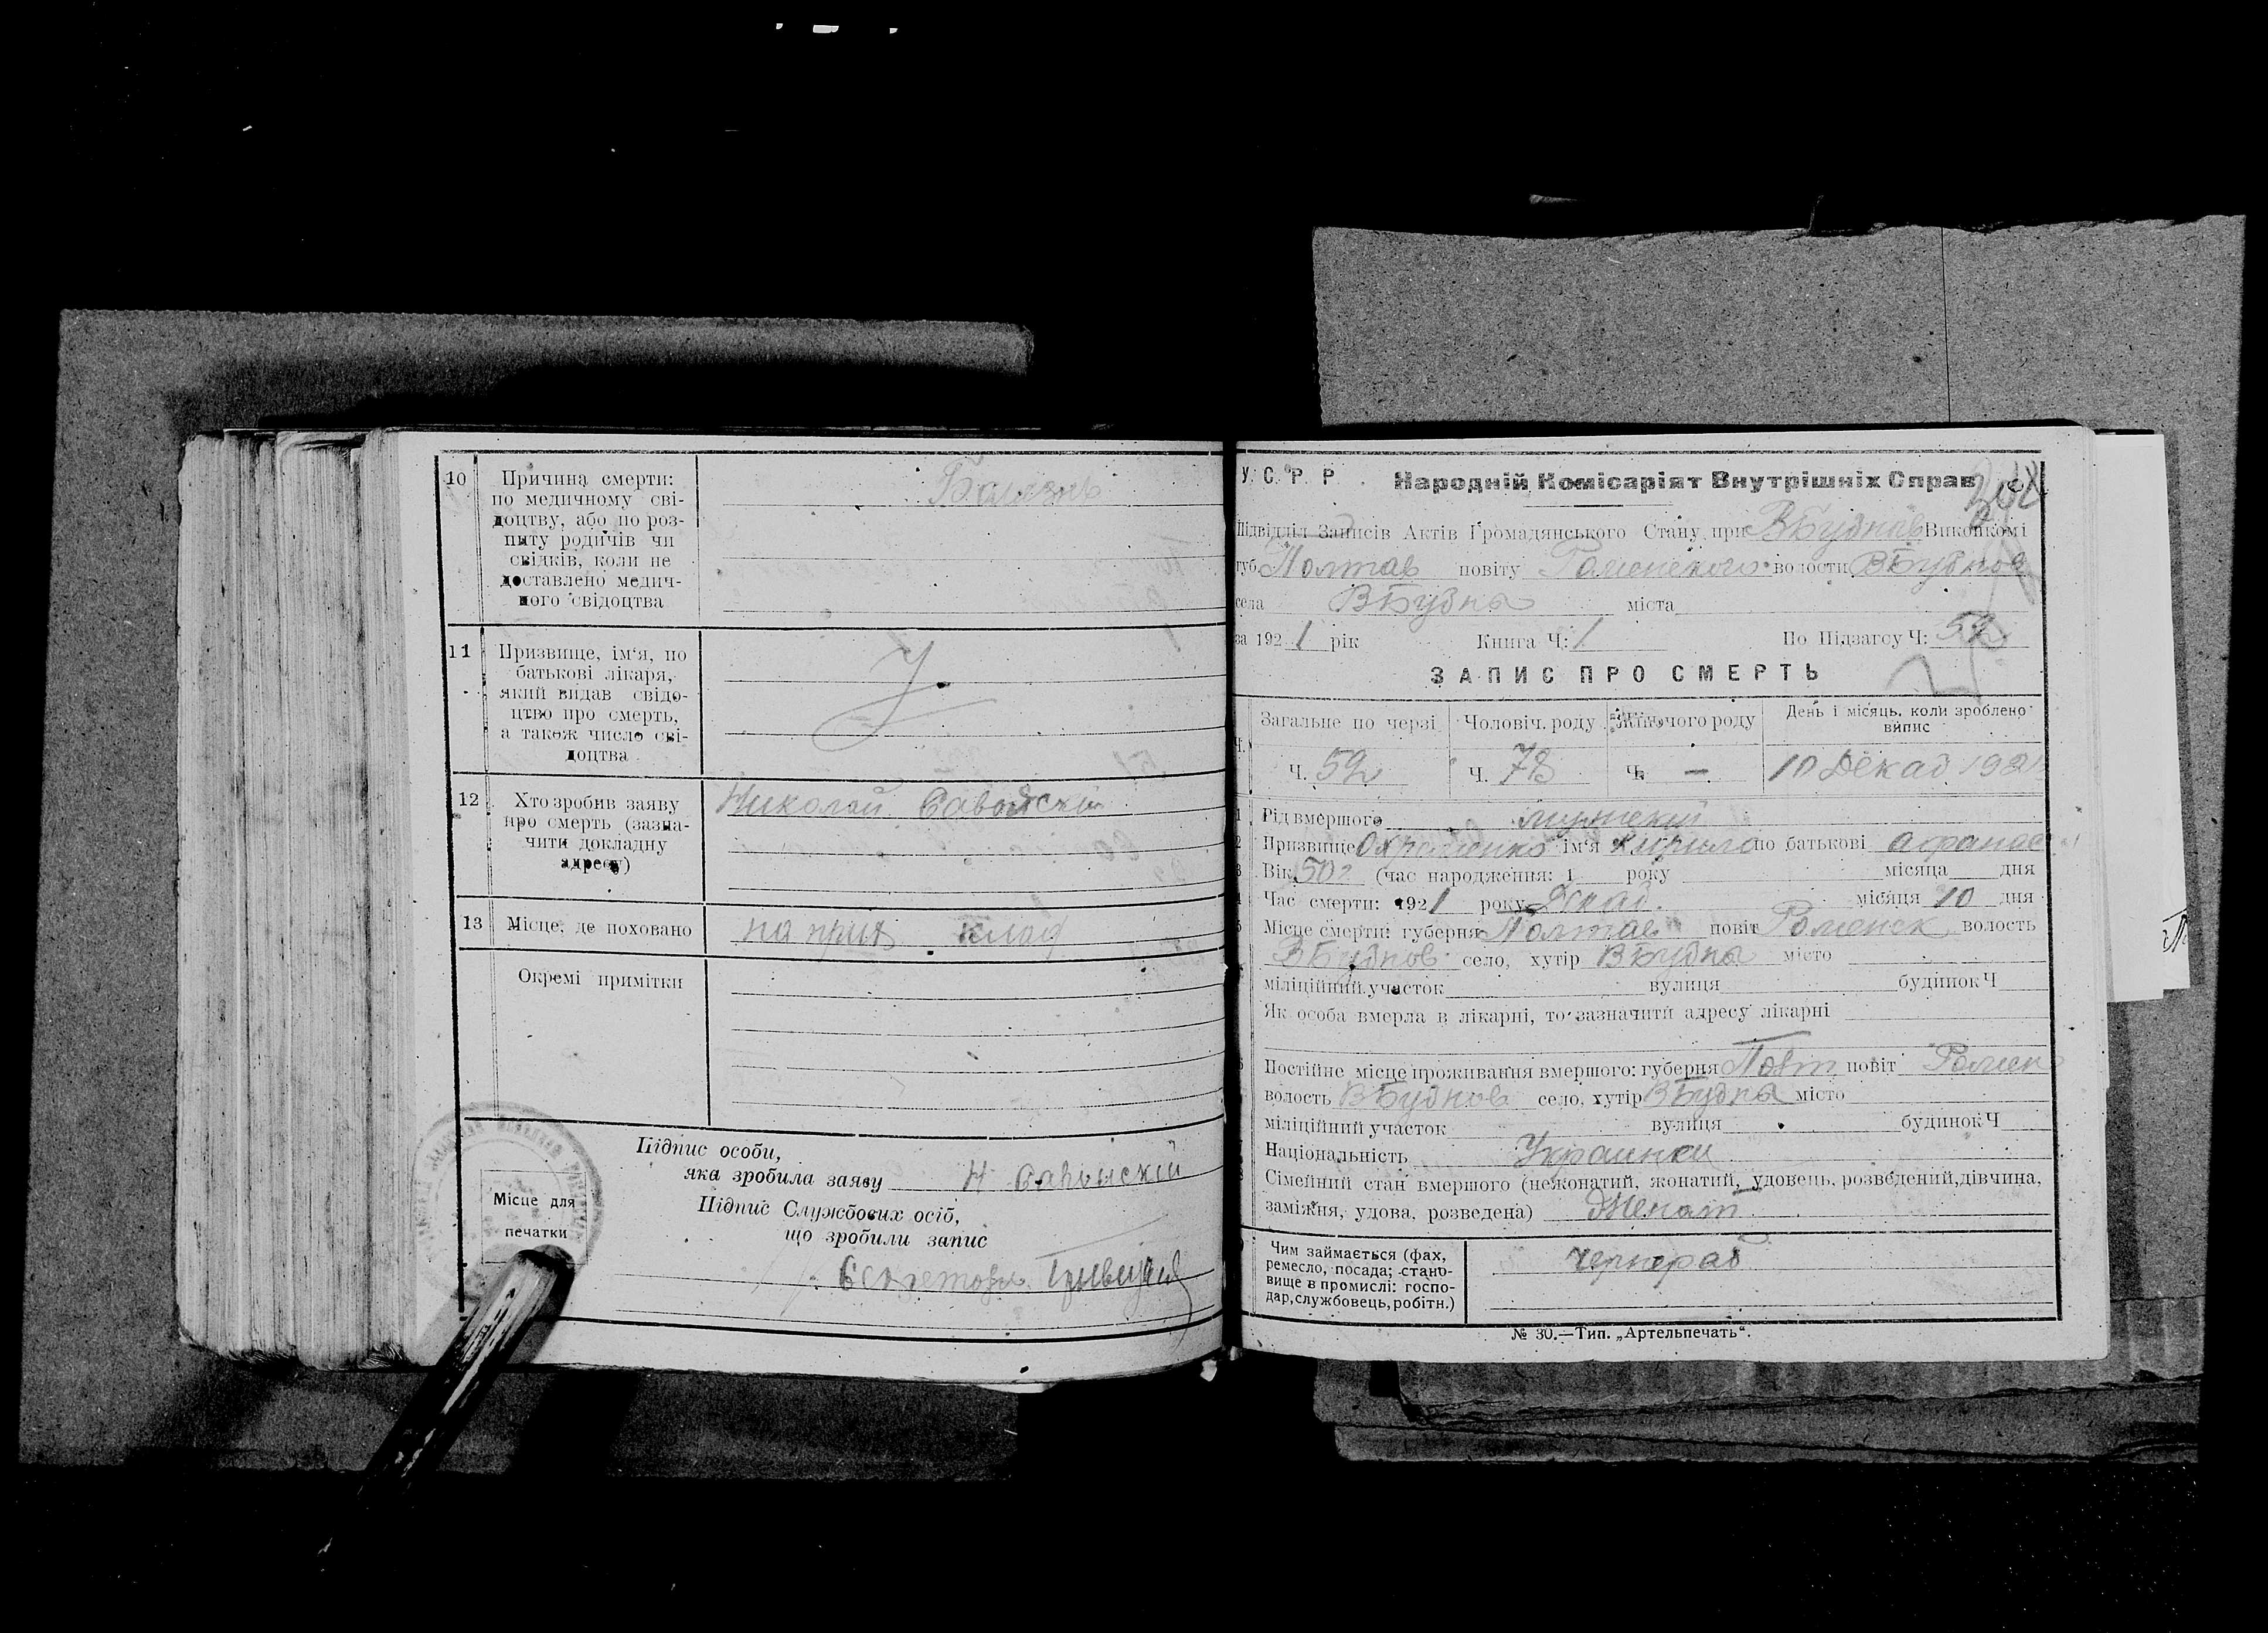 10
Причина смерти:
по медичному сві-
доцтву, або по роз-
питу родичів чи
свідків, коли не
доставлено медич-
ного свідоцтва
11
Призвище, ім'я, по
батькові лікаря,
який видав свідо-
цтво про смерть,
а також число сві-
доцтва
12
Хто зробив заяву
про смерть (зазна-
чити докладну
адресу)
Николай
13
Місце, де поховано
на прих клад
Окремі примітки
Підпис особи,
яка зробила заяву Н
Підпис Службових осіб,
що зробили запис
Місце для
печатки
У. С. Р. Р. Народній Комісаріят Внутрішніх Справ
Підвідділ Записів Актів Громадянського Стану при ВБубнов Виконкомі
губ. Полтав повіту Роменского волости ВБубнов
села ВБубны міста
за 1921 рік Книга Ч: 1 По Підзагсу Ч: 52
ЗАПИС ПРО СМЕРТЬ
Загальне по черзі Чоловіч. роду Жіночого роду День і місяць, коли зроблено
випис
Ч. 52 Ч. Ч. — 10 Декаб 1921
1 Рід вмершого мужский
2 Призвище ім'я Кирило по батькові Афанас
3 Вік 50 (час народження: 1 року місяца дня
4 Час смерти: 1921 року Декаб. місяця 10 дня
5 Місце смерти: губерня Полтав повіт Роменск волость
ВБубнов село, хутір ВБубны місто
міліційний участок вулиця будинок Ч
Як особа вмерла в лікарні, то зазначити адресу лікарні
6 Постійне місце проживання вмершого: губерня Полт повіт Ромен
волость ВБубнов село, хутір ВБубны місто
міліційний участок вулиця будинок Ч
Національність Украинец
Сімейний стан вмершого (нежонатий, жонатий, удовець, розведений, дівчина,
заміжня, удова, розведена) Женат
Чим займається (фах,
ремесло, посада; стано-
вище в промислі: госпо-
дар, службовець, робітн.)
чернораб
№ 30.—Тип. „Артельпечать".